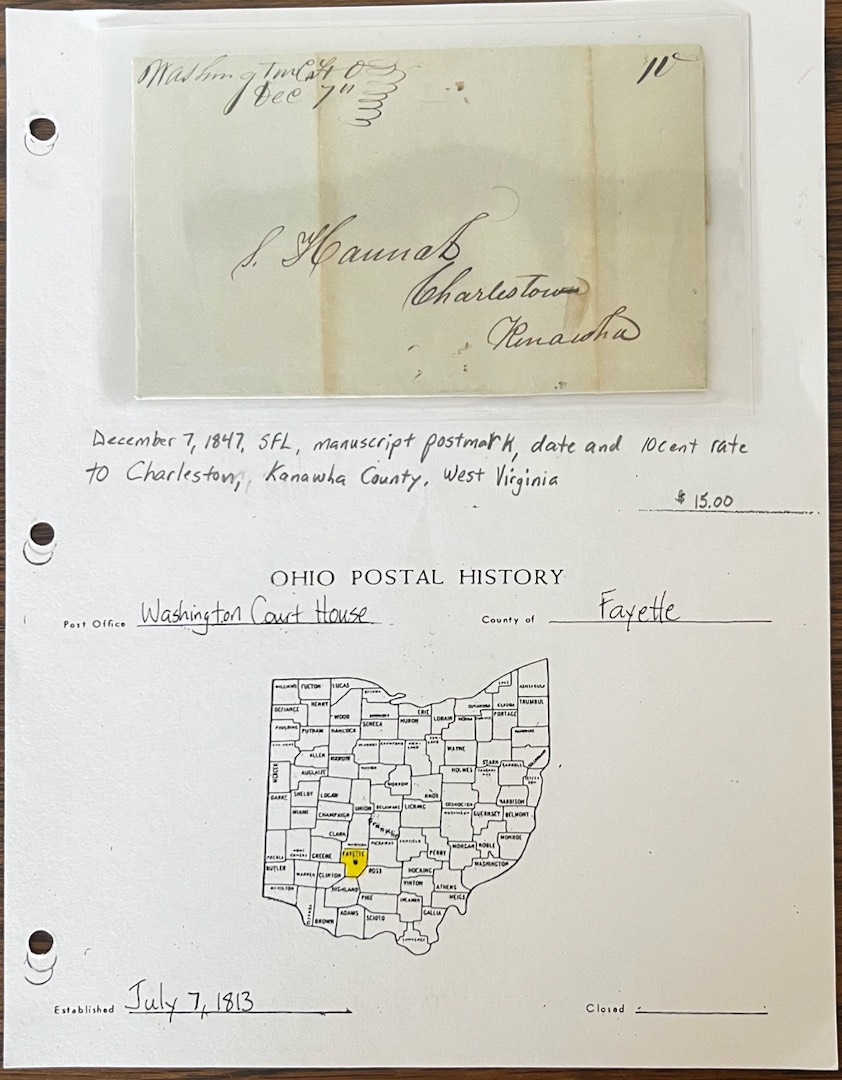 Washington C. H. O
Dec 7"
10
S. Hannah
Charlestown
Kenawha
December 7, 1847, SFL, manuscript postmark, date and 10cent rate
to Charleston, Kanawha County, West Virginia
$ 15.00
OHIO POSTAL HISTORY
Post Office Washington Court House County of Fayette
WILLIAMS FULTON LUCAS LAKE ASHTABULA
DEFIANCE HENRY WOOD OTTAWA ERIE LORAIN CUYAHOGA GEAUGA TRUMBULL
PAULDING PUTNAM HANCOCK SENECA HURON MEDINA PORTAGE
ALLEN WAYNE STARK
MERCER AUGLAIZE HOLMES CARROLL
DARKE SHELBY LOGAN UNION MORROW DELAWARE KNOX LICKING COSHOCTON HARRISON
MIAMI CHAMPAIGN Franklin GUERNSEY BELMONT
CLARK PICKAWAY MORGAN NOBLE MONROE
PREBLE GREENE FAYETTE PERRY WASHINGTON
BUTLER WARREN CLINTON ROSS HOCKING
HAMILTON HIGHLAND VINTON ATHENS
PIKE MEIGS
BROWN ADAMS SCIOTO GALLIA
LAWRENCE
Established July 7, 1813 Closed